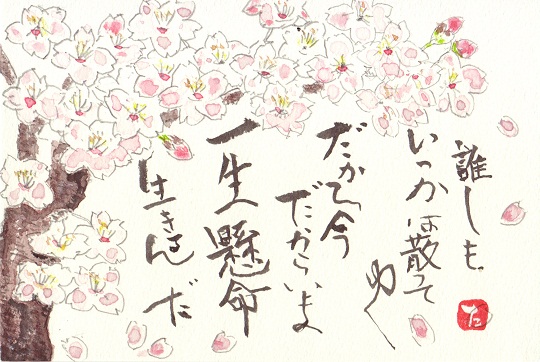 誰しも
いつかは散って
ゆく
だから今
だからいま
一生懸命
生きるんだ
た